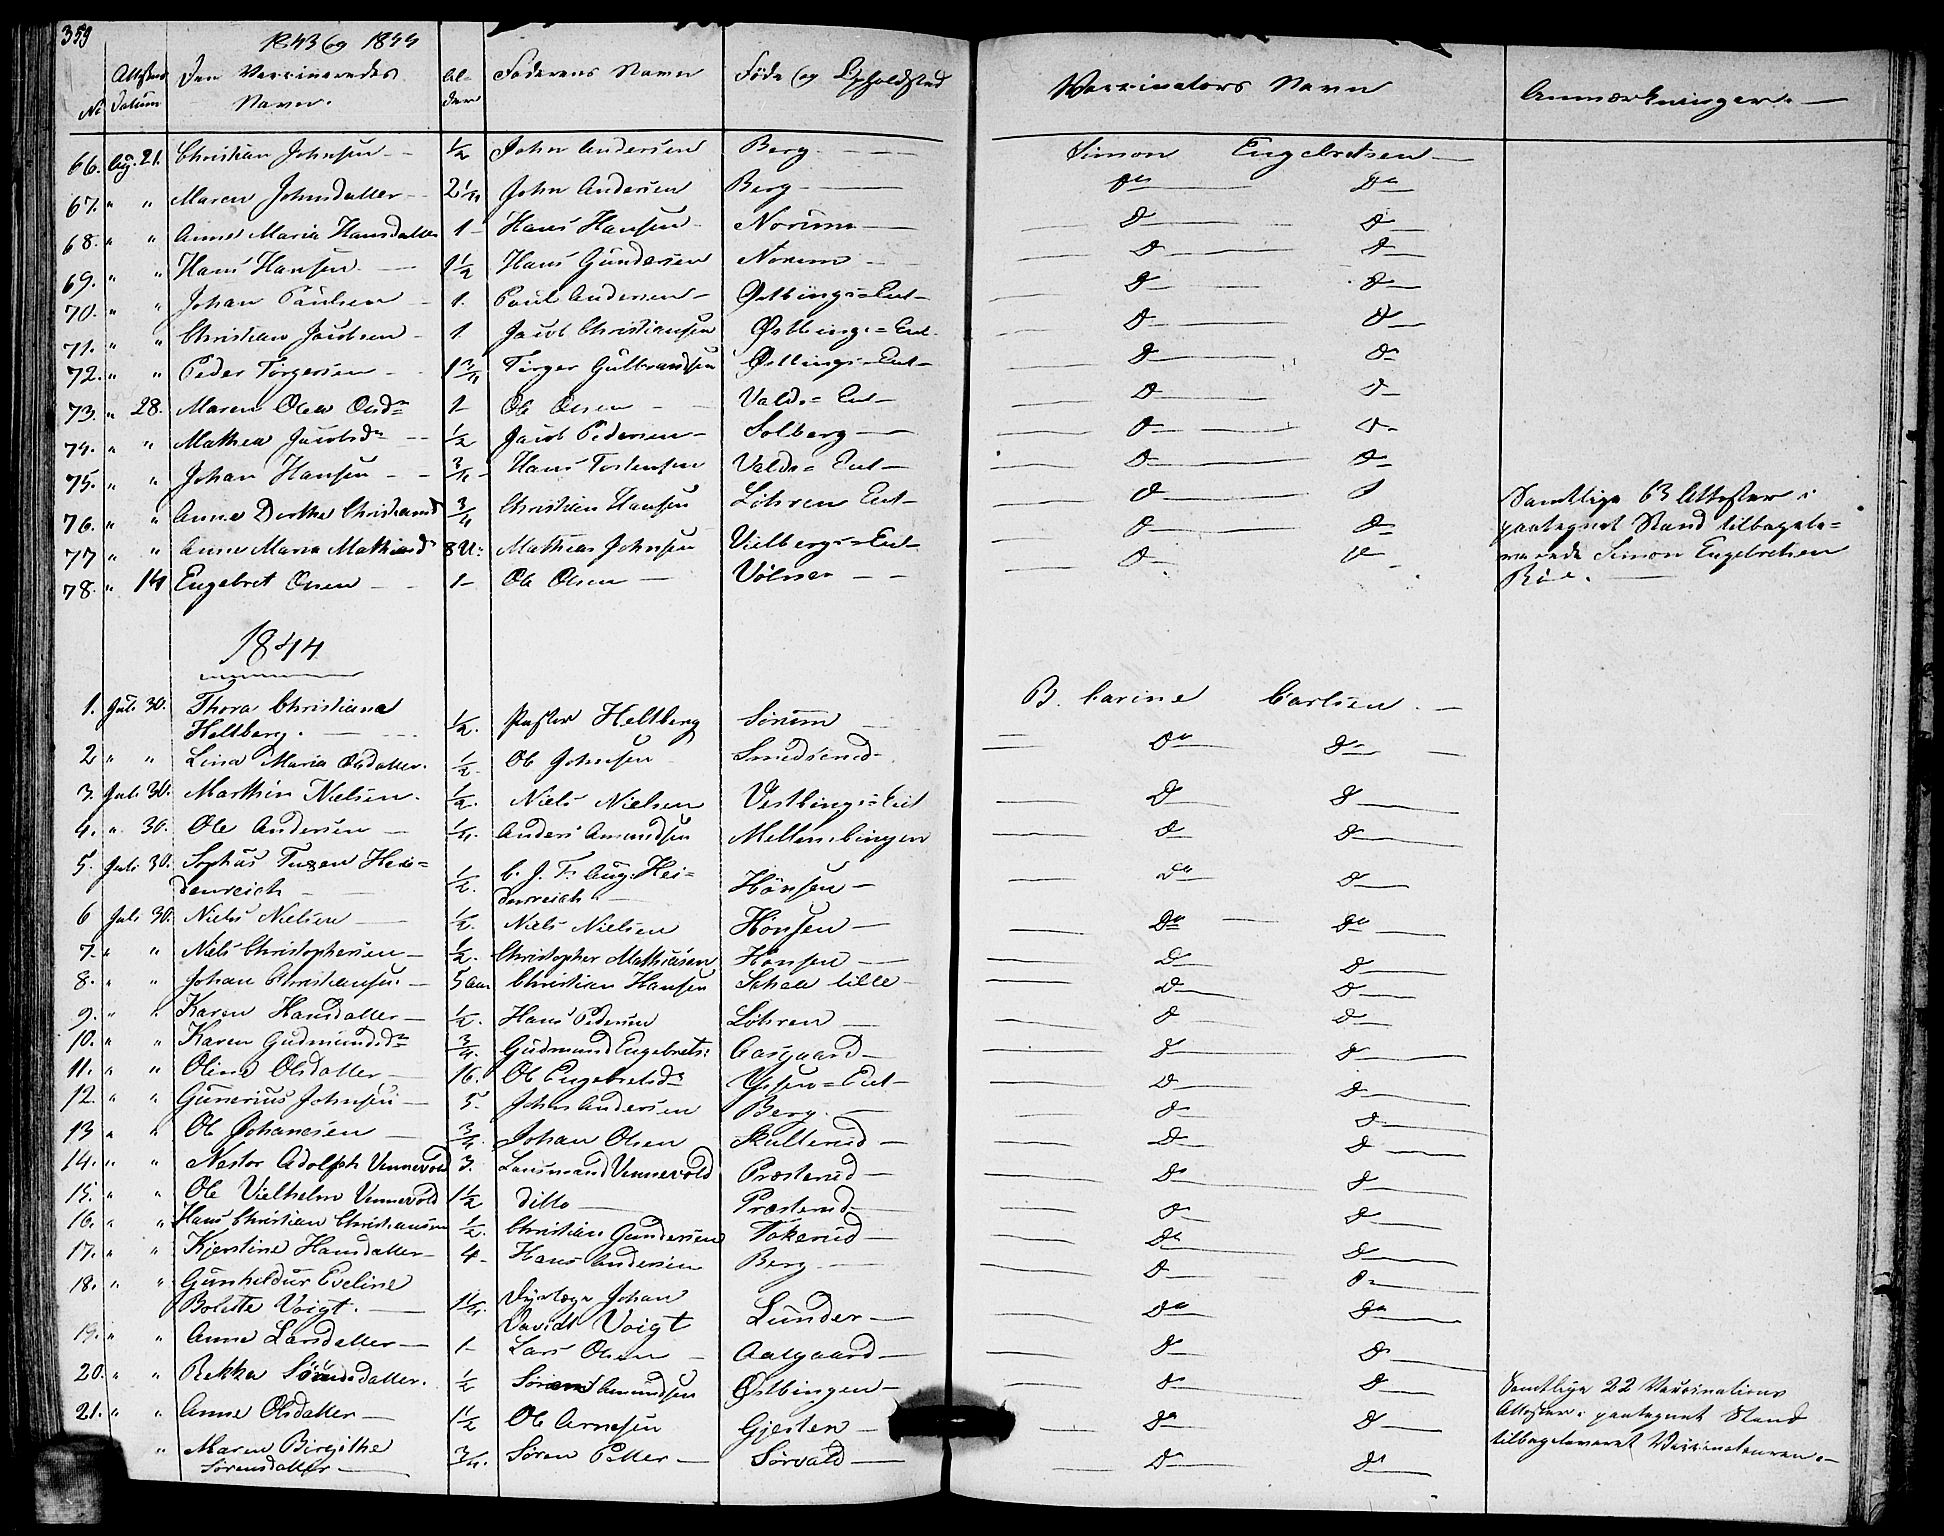 359
1843 og 1844
No
Attestens Datum
Den Vaccineredes Navn.
Alder
Faderens Navn
Føde og Opholdsted
Vaccinators Navn
Anmærkninger. —
66. Aug. 21. Christian Johnsen — 1/2 John Andersen Berg. — Simon Engebretsen —
67. " " Maren Johnsdatter — 2 1/4 John Andersen Berg — Do Do
68. " " Anne Maria Hansdatter 1 — Hans Hansen Norum — D D
69. " " Hans Hansen — 1 1/2 Hans Gundersen Norum — D D
70. " " Johan Paulsen — 1. Paul Andersen — Østbings=Eiet — D D
71. " " Christian Jacobsen — 1 Jacob Christiansen Østbings=Eiet — D D
72. " " Peder Torgersen — 1 3/4 Torger Gulbrandsen Østbings=Eiet — D D
73. " 28. Maren Olea Olsdr 1 — Ole Olsen — Valds=Eiet — D D
74. " " Mathea Jacobsdr — 1/2 Jacob Pedersen — Solberg — D D
75. " " Johan Hansen — 3/4 — Hans Torstensen Valds=Eiet — D D
76. " " Anne Dorthea Christiansd 3/4 Christian Hansen Löhren Eiet — D D
77 " " Anne Maria Mathiasdr 8 U. Mathias Johnsen Vielbergs=Eiet — D D
78. " 14 Engebret Olsen — 1 — Ole Olsen — — D D
Samtlige 63 Attester i
paategnet Stand tilbagele=
verede Simon Engebretsen
1844
1. Juli 30. Thora Christiana
Heltberg. — 1/2. Pastor Heltberg Sörum — B. Carine Carlsen. —
2 " " Lina Maria Olsdatter. 1/2 Ole Johnsen Smedsrud — Do Do
3. Juli 30. Marthin Nielsen. 1/2. Niels Nielsen Vestbings=Eiet D D
4. " 30. Ole Andersen — 1/4. Anders Amundsen Mellembingen D D
5. Juli 30. Sophus Tuxen Hei=
denreich — 1/2. C. J. F. Aug. Hei=
denreich. Hönsen — Do D
6 Juli 30. Niels Nielsen — 1/2. Niels Nielsen Hönsen — Do Do
7. " " Niels Christophersen — 1/2. Christopher Mathiasen Hönsen — D D
8. " " Johan Christiansen. — 5 aar Christian Hansen lille — D D
9. " " Karen Hansdatter — 1/2. Hans Pedersen Löhren — D D
10. " " Karen Gudmundsdr 3/4. Gudmund Engebrets: Aasgaard — D D
11. " " Oline Olsdatter — 16. Ole Engebretsdr Yssen=Eiet — D D
12. " " Gunerius Johnsen — 5. John Andersen Berg. — D D
13 " " Ole Johansen — 3/4. Johan Olsen Skulterud — D D
14. " " Nestor Adolph Vennevold 3. Lensmand Vennevold Præsterud — D D
15. " " Ole Vielhelm Vennevold 1 1/2 ditto — Præsterud — D D
16. " " Hans Christian Christiansen 1/2. Christian Gundersen Tokerud — Do D
17. " " Kjerstine Hansdatter — 4. Hans Andersen Berg. — D D
18. " " Gunhildur Eveline
Bolette Voigt. — 1 1/4. Dyrlæge Johan
Davidt Voigt Lunder — Do Do
19. " " Anne Larsdatter — 1 — Lars Olsen — Aalgaard — D D
20. " " Rekka Sörensdatter. 1/2 Sören Amundsen Østbingen — D D
21. " " Anne Olsdatter — 1 1/2 Ole Arnesen Gjesten — Do D
" Maren Birgithe
Sörensdatter — 3/4. Sören Petter — Sörvald — D D
Samtlige 22 Vaccinations
Attester i paategnet Stand
tilbageleveret Vaccinateuren. —